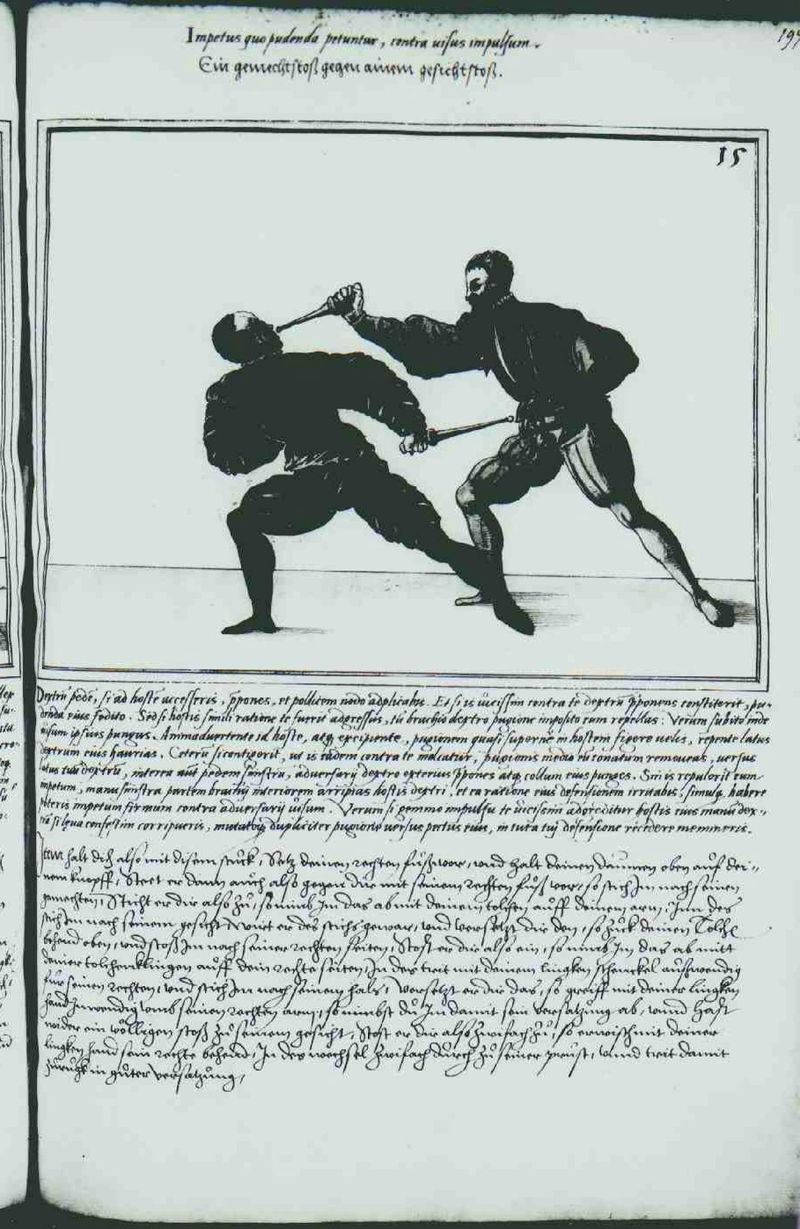 197
Impetus quo pudenda petuntur, contra uisus impulsum.
Ein gemechtstoß gegen ainem gesichtstoß.
15
Dextrū pedē, si ad hostē accesseris, p̄pones, et pollicem nodo adplicabis. Et si is uicissim contra te dextrū p̄ponens constiterit, pu-
denda eius fodito. Sed si hostis simili ratione te fuerit adgressus, tu brachio dextro pugione imposito eum repellas: Verum subito inde
uisum ipsius pungas. Animaduertente id hoste, atq; excipiente, pugionem quasi superne in hostem figere uelis, repente latus
dextrum eius haurias. Ceterū si contigerit, ut is eadem contra te moliatur, pugionis medio eū conatum remoueas, uersus
latus tuū dextrū, interea aūt pedem sinistrū, aduersarij dextro exterius p̄pones atq; collum eius punges. Sin is repulerit eum
impetum, manu sinistra partem brachij interiorem arripias hostis dextri, et ea ratione eius defensionem irritabis, simulq; habere
poteris impetum firmum contra aduersarij uisum. Verum si gemino impulsu te uicissim adoreditur hostis eius manū dex-
trā si leua confestim corripueris, mutatoq; dupliciter pugione uersus pectus eius, in tuta tui defensione recedere memineris.
Item halt dich also mit disem stuck, Setz deinen rechten fuß vor, vnd halt deinen daumen oben auff dei-
nem knopff, Steet er dann auch also gegen dir mit seinem rechten fuß vor, so stich Im nach seinen
gemechten, Sticht er dir also zu, so nimb Im das ab mit deinem tolchen auff deinem arm, Inn des
stich Im nach seinem gesicht, Wirt er des stichs gewar, vnd versetzt dir den, so zuck deinen Tolch
behend oben, vnd stoß Im nach seiner rechten seiten, Stost er dir also ein, so nimb Im das ab mitt
deiner tolchenklingen auff dein rechte seiten, In des trit mit deinem lingken schenckel außwendig
für seinen rechten, vnd stich Im nach seinem hals, versetzt er dir das, so greiff mit deiner lingken
hand Inwendig vmb seinen rechten arm, so nimbst du Im damit sein versatzung ab, vnnd hast
wider ein völligen stoß zu seinem gesicht, Stost er dir also zwifach zu, so erwisch mit deiner
lingken hand sein rechte behend, In des wechsel zwifach durch zu seiner prust, vnnd trit damit
zurugk in guter versatzung,